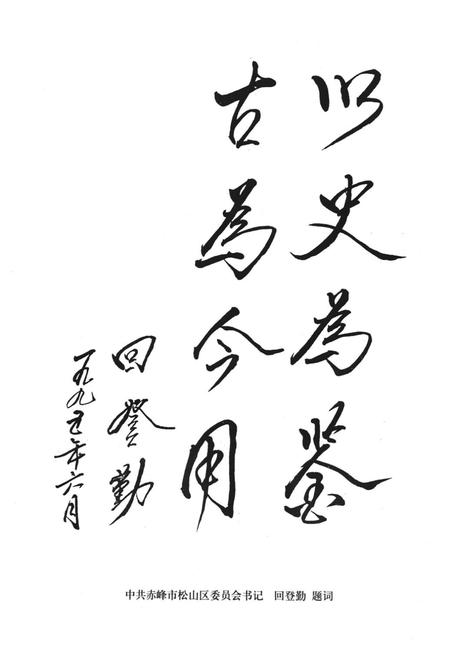 以史為鉴
古為今用
回登勤
一九九五年六月
中共赤峰市松山区委员会书记 回登勤 题词